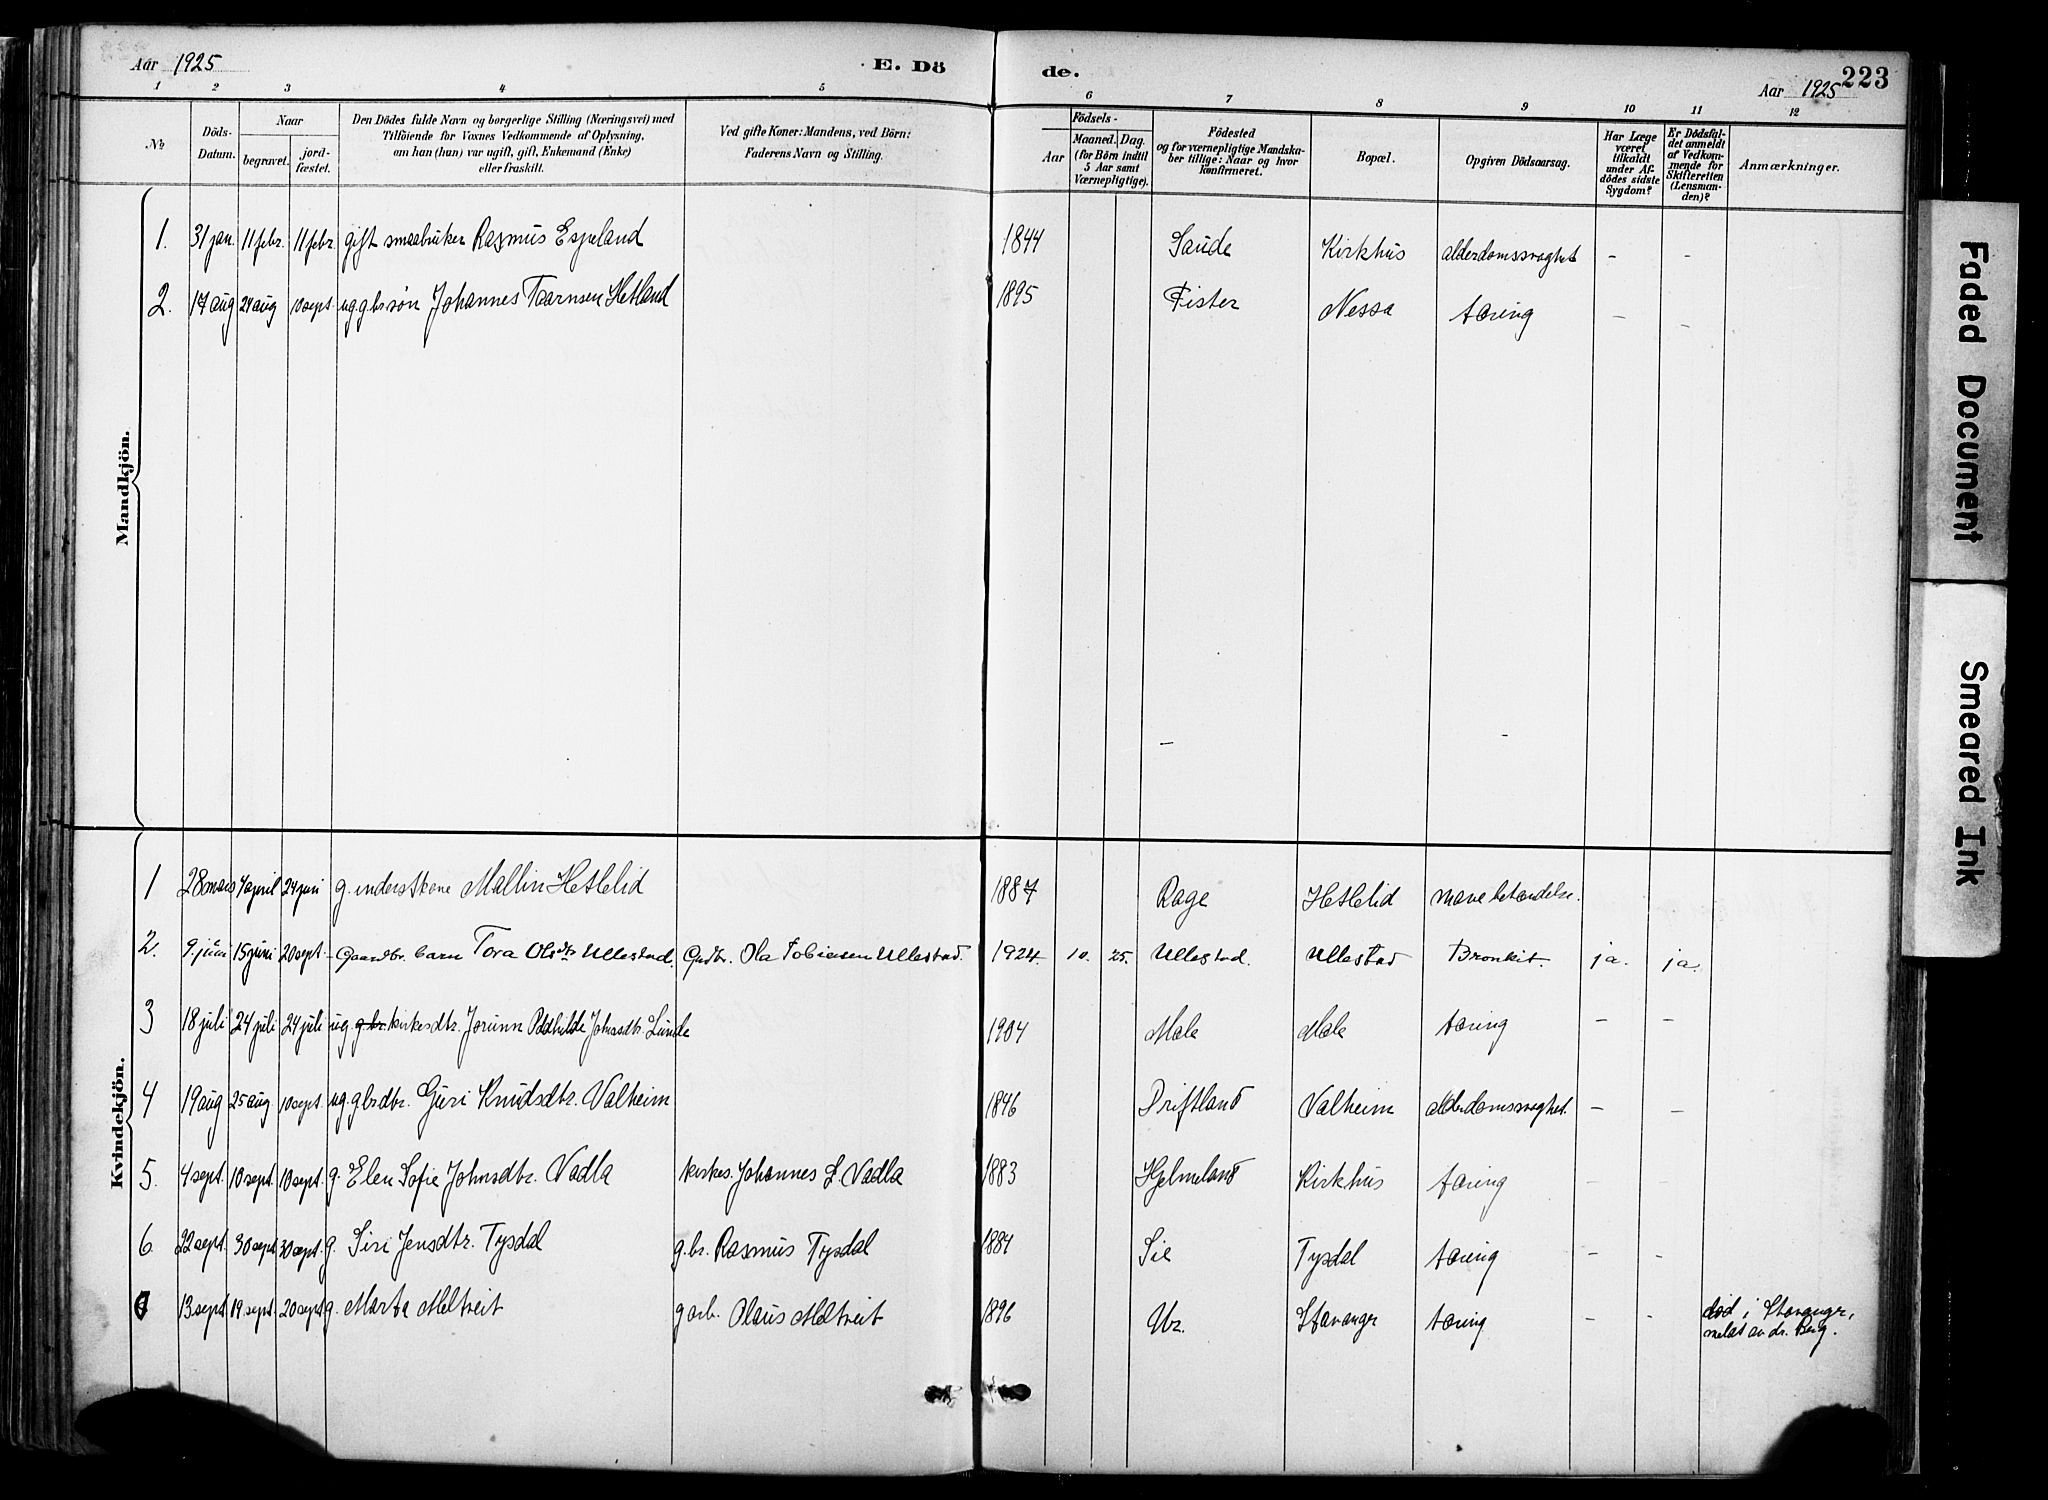 Aar 1925
E. Dö
de.
Aar 1925
223
1 2 3 4 5 6 7 8 9 10 11 12
№
Döds-
Datum.
Naar
begravet.
jord-
fæstet.
Den Dödes fulde Navn og borgerlige Stilling (Næringsvei) med
Tilföiende for Voxnes Vedkommende af Oplysning,
om han (hun) var ugift, gift, Enkemand (Enke)
eller fraskilt.
Ved gifte Koner: Mandens, ved Börn:
Faderens Navn og Stilling.
Födsels-
Aar
Maaned. Dag.
(for Börn indtil
5 Aar samt
Værnepligtige).
Födested
og for værnepligtige Mandska-
ber tillige: Naar og hvor
konfirmeret.
Bopæl.
Opgiven Dödsaarsag.
Har Læge
været
tilkaldt
under Af-
dödes sidste
Sygdom?
Er Dödsfal-
det anmeldt
af Vedkom-
mende for
Skifteretten
(Lensman-
den)?
Anmærkninger.
Mandkjön.
1. 31 jan. 11 febr. 11 febr. gift smaabruker Rasmus Espeland 1844 Saude Kirkhus alderdomssvaghet – –
2. 17 aug 24 aug 10 sept. ug. g.br.søn Johannes Taarnsen Hetland 1895 Fister Nessa tæring – –
Kvindekjön.
1 28 mars 4 april 24 juni g. Mallin Hetlelid 1887 Rage Hetlelid mavebetændelse.
2. 9. juni 15 juni 20 sept. Gaardbr. barn Tora Olsdtr Ullestad. Grdbr. Ola Tobiasen Ullestad. 1924. 10. 25. Ullestad. Ullestad Bronkit. ja. ja.
3 18 juli 24 juli 24 juli ug. g.br. kirkesdtr. Jorunn Oddhilde Johnsdtr. Lunde 1904 Mæle Mæle tæring – –
4 19 aug 25 aug. 10 sept. ug. gbrdtr. Guri Knudsdtr. Valheim 1846 Driftland Valheim alderdomssvaghet. – –
5. 4 sept. 10 sept. 10 sept. g. Elen Sofie Johnsdtr. Vadla kirkes. Johannes L. Vadla 1883 Hjelmeland Kirkhus tæring – –
6. 22 sept. 30 sept. 30 sept. g. Siri Jensdtr. Tysdal g.br. Rasmus Tysdal 1884 Sie Tysdal tæring – –
7 13 sept. 19 sept. 20 sept. g. Marta Meltveit garb. Olaus Meltveit 1896 Ur. Stavanger tæring – – død i Stavanger,
meldt av dr. Berg.
Faded Document
Smeared Ink